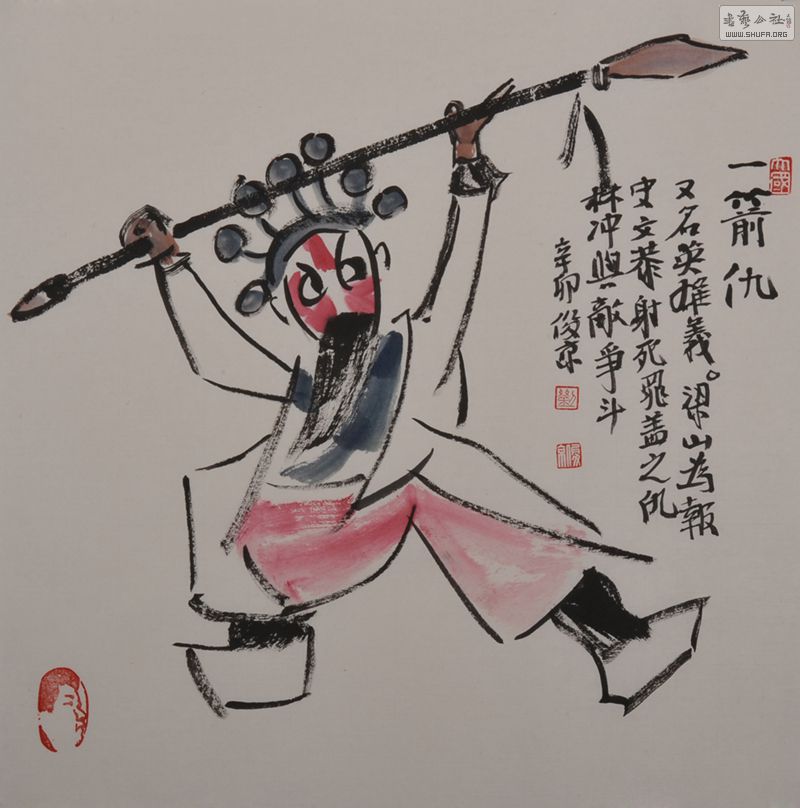 書藝公社
WWW.SHUFA.ORG
一箭仇
又名英雄義。梁山为報
史文恭射死晁盖之仇
林冲與敵爭斗
辛卯俊京